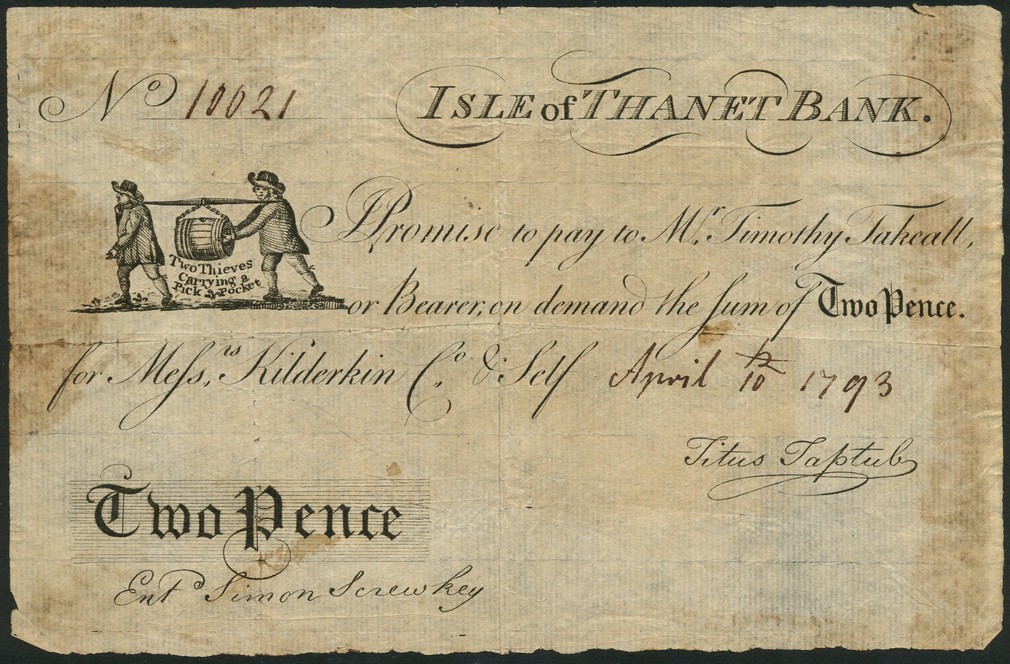 No 10021
ISLE of THANET BANK.
Two Thieves
Carrying a
Pick a Pocket
I Promise to pay to Mr. Timothy Takeall,
or Bearer, on demand the ſum of Two Pence.
for Meſsrs. Kilderkin Co. & Self April 10th 1793
Titus Taptub
Two Pence
Entd Simon Screwkey